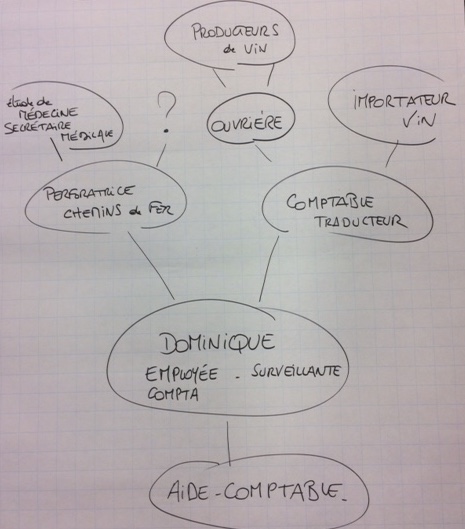 PRODUCTEURS
de VIN
étude de
MÉDECINE
SECRÉTAIRE
MÉDICALE
?
OUVRIÈRE
IMPORTATEUR
VIN
PERFORATRICE
CHEMINS de FER
COMPTABLE
TRADUCTEUR
DOMINIQUE
EMPLOYÉE - SURVEILLANTE
COMPTA
AIDE-COMPTABLE.